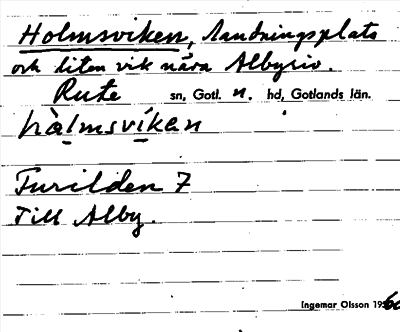 Holmsviken, landningsplats
och liten vik nära Albysio.
Rute sn, Gotl. n. hd, Gotlands län.
hàlmsvíkan
Furilden 7
Till Alby.
Ingemar Olsson 1960